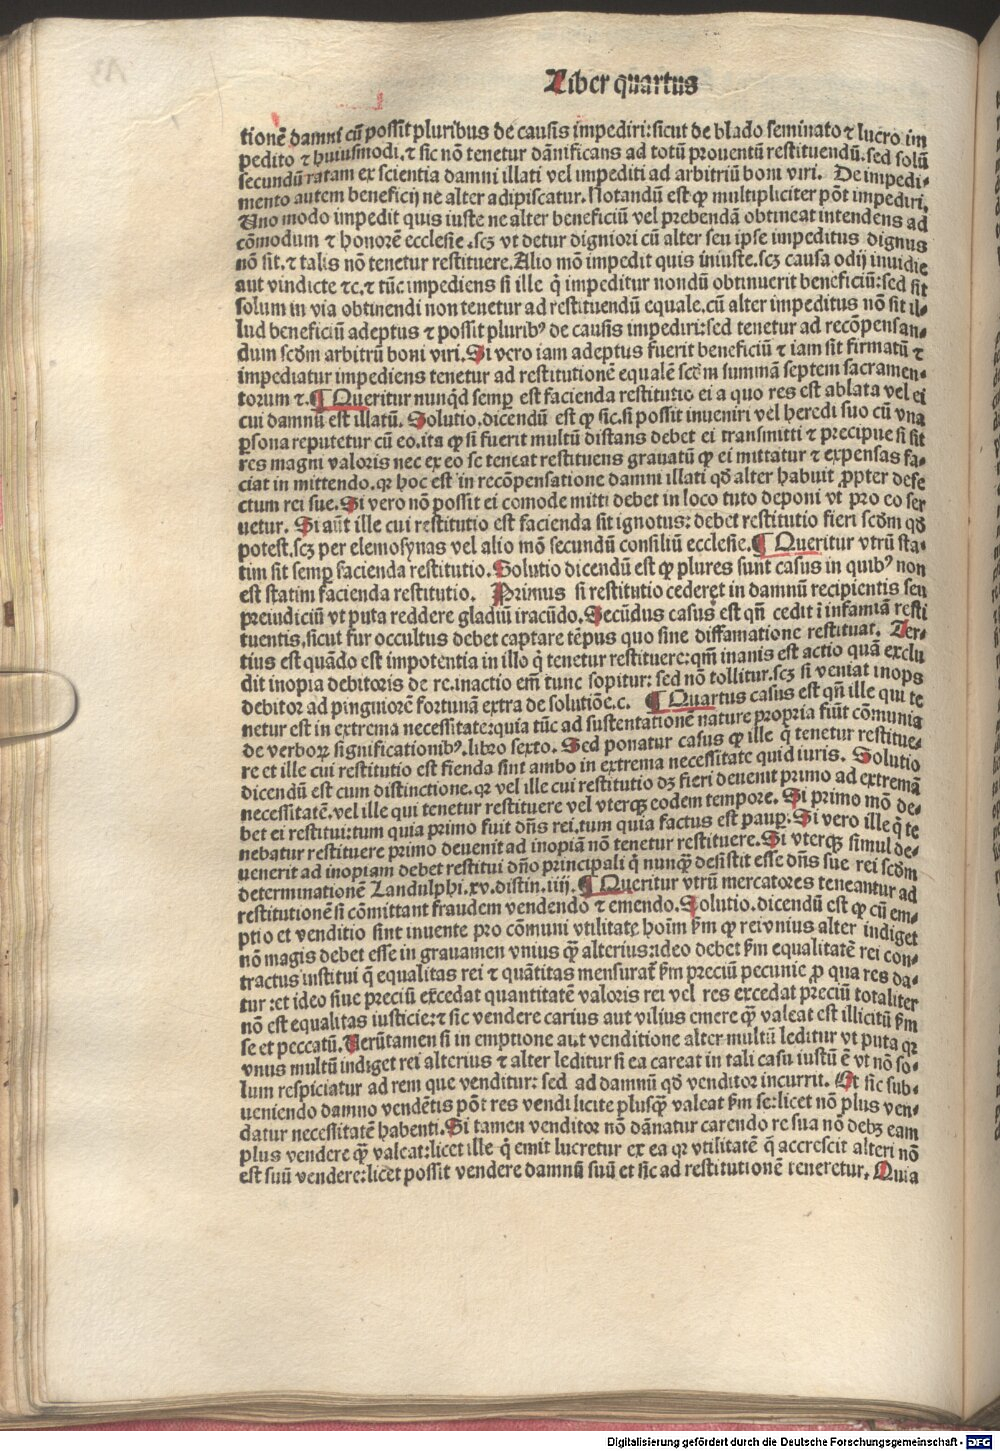 Liber quartus
tionē damni cū possit pluribus de causis impediri:sicut de blado seminato ⁊ lucro im
pedito ⁊ huiusmodi.⁊ sic nō tenetur dānificans ad totū prouentū restituendū.sed solū
secundū ratam ex scientia damni illati vel impediti ad arbitriū boni viri. De impedi⸗
mento autem beneficij ne alter adipiscatur.Notandū est ꝙ multipliciter pōt impediri.
Uno modo impedit quis iuste ne alter beneficiū vel prebendā obtineat intendens ad
cōmodum ⁊ honorē ecclesie.scꝫ vt detur digniori cū alter seu ipse impeditus dignus
nō sit.⁊ talis nō tenetur restituere.Alio mō impedit quis iniuste.scꝫ causa odij inuidie
aut vindicte ⁊c.⁊ tūc impediens si ille q̇ impeditur nondū obtinuerit beneficiū:sed sit
solum in via obtinendi non tenetur ad restituendū equale.cū alter impeditus nō sit il⸗
lud beneficiū adeptus ⁊ possit pluribꝰ de causis impediri:sed tenetur ad recōpensan⸗
dum scďm arbitrū boni viri.Si vero iam adeptus fuerit beneficiū ⁊ iam sit firmatū ⁊
impediatur impediens tenetur ad restitutionē equalē scďm summā septem sacramen⸗
torum ⁊.¶ Queritur nunqd semꝑ est facienda restitutio ei a quo res est ablata vel ei
cui damnū est illatū. Solutio.dicendū est ꝙ sic.si possit inueniri vel heredi suo cū vna
ꝑsona reputetur cū eo.ita ꝙ si fuerit multū distans debet ei transmitti ⁊ precipue si sit
res magni valoris nec ex eo se teneat restituens grauatū ꝙ ei mittatur ⁊ expensas fa⸗
ciat in mittendo.qꝛ hoc est in recōpensatione damni illati qď alter habuit ꝓpter defe
ctum rei sue.Si vero nō possit ei comode mitti debet in loco tuto deponi vt pro eo ser
uetur. Si aūt ille cui restitutio est facienda sit ignotus:debet restitutio fieri scďm qď
potest.scꝫ per elemosynas vel alio mō secundū consiliū ecclesie.¶ Queritur vtrū sta⸗
tim sit semꝑ facienda restitutio.Solutio dicendū est ꝙ plures sunt casus in quibꝰ non
est statim facienda restitutio. Primus si restitutio cederet in damnū recipientis seu
preiudiciū vt puta reddere gladiū iracūdo.Secūdus casus est qñ cedit ī infamiā resti
tuentis.sicut fur occultus debet captare tēpus quo sine diffamatione restituat. Ter⸗
tius est quādo est impotentia in illo q̇ tenetur restituere:qm̄ inanis est actio quā exclu
dit inopia debitoris de re.inactio em̄ tunc sopitur: sed nō tollitur.scꝫ si veniat inops
debitor ad pinguiorē fortunā extra de solutiōe.c. ¶ Quartus casus est qñ ille qui te
netur est in extrema necessitate:quia tūc ad sustentationē nature propria fiūt cōmunia
de verboꝝ significationibꝰ.libro sexto. Sed ponatur casus ꝙ ille q̇ tenetur restitue⸗
re et ille cui restitutio est fienda sint ambo in extrema necessitate quid iuris. Solutio
dicendū est cum distinctione.qꝛ vel ille cui restitutio dꝫ fieri deuenit primo ad extremā
necessitatē.vel ille qui tenetur restituere vel vterqꝫ eodem tempore. Si primo mō de⸗
bet ei restitui:tum quia primo fuit dn̄s rei.tum quia factus est pauꝑ.Si vero ille q̇ te
nebatur restituere primo deuenit ad inopiā nō tenetur restituere.Si vterqꝫ simul de⸗
uenerit ad inopiam debet restitui dn̄o principali q̇ nunqꝫ desistit esse dn̄s sue rei scďm
determinationē Landulphi.xv.distin.iiij.¶ Queritur vtrū mercatores teneantur ad
restitutionē si cōmittant fraudem vendendo ⁊ emendo.Solutio.dicendū est ꝙ cū em⸗
ptio et venditio sint inuente pro cōmuni vtilitate hoīm ẜm ꝙ rei vnius alter indiget
nō magis debet esse in grauamen vnius qꝫ alterius:ideo debet ẜm equalitatē rei con⸗
tractus institui q̄ equalitas rei ⁊ quātitas mensurat᷑ ẜm preciū pecunie ꝓ qua res da⸗
tur:et ideo siue preciū excedat quantitatē valoris rei vel res excedat preciū totaliter
nō est equalitas iusticie:⁊ sic vendere carius aut vilius emere qꝫ valeat est illicitū ẜm
se et peccatū.Uerūtamen si in emptione aut venditione alter multū leditur vt puta qꝛ
vnus multū indiget rei alterius ⁊ alter leditur si ea careat in tali casu iustū ē vt nō so⸗
lum respiciatur ad rem que venditur: sed ad damnū qď venditor incurrit. Et sic sub⸗
ueniendo damno vendētis pōt res vendi licite plusqꝫ valeat ẜm se:licet nō plus ven⸗
datur necessitatē habenti.Si tamen venditor nō dānatur carendo re sua nō debꝫ eam
plus vendere qꝫ valeat:licet ille q̇ emit lucretur ex ea qꝛ vtilitatē q̄ accrescit alteri nō
est suū vendere:licet possit vendere damnū suū et sic ad restitutionē teneretur. Quia
Digitalisierung gefördert durch die Deutsche Forschungsgemeinschaft - DFG